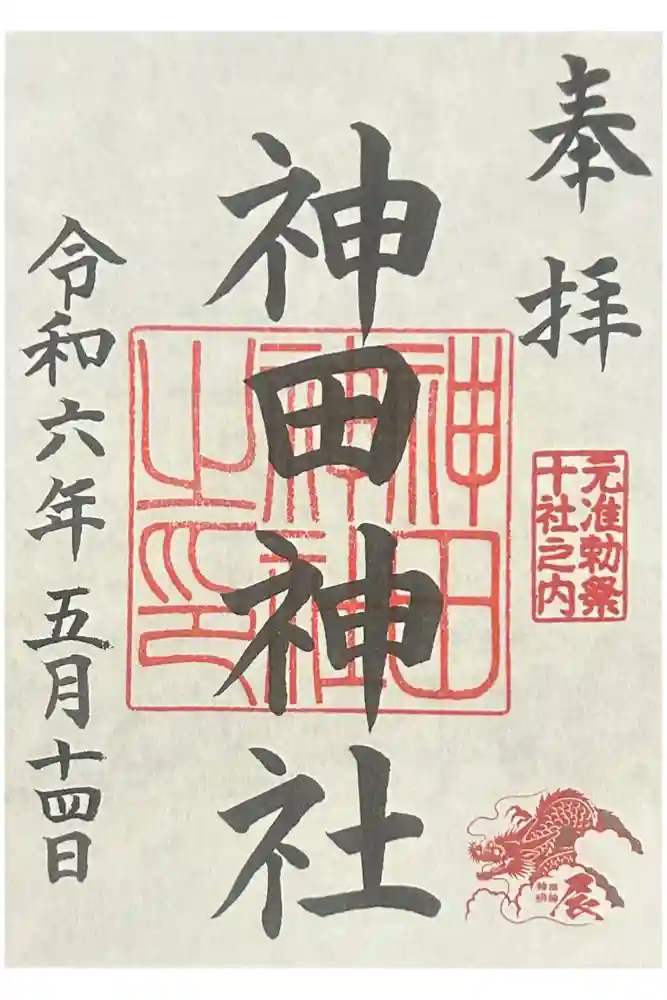 奉拝
元准勅祭
十社之内
神田神社
神田
神社
之印
辰
令和六年五月十四日